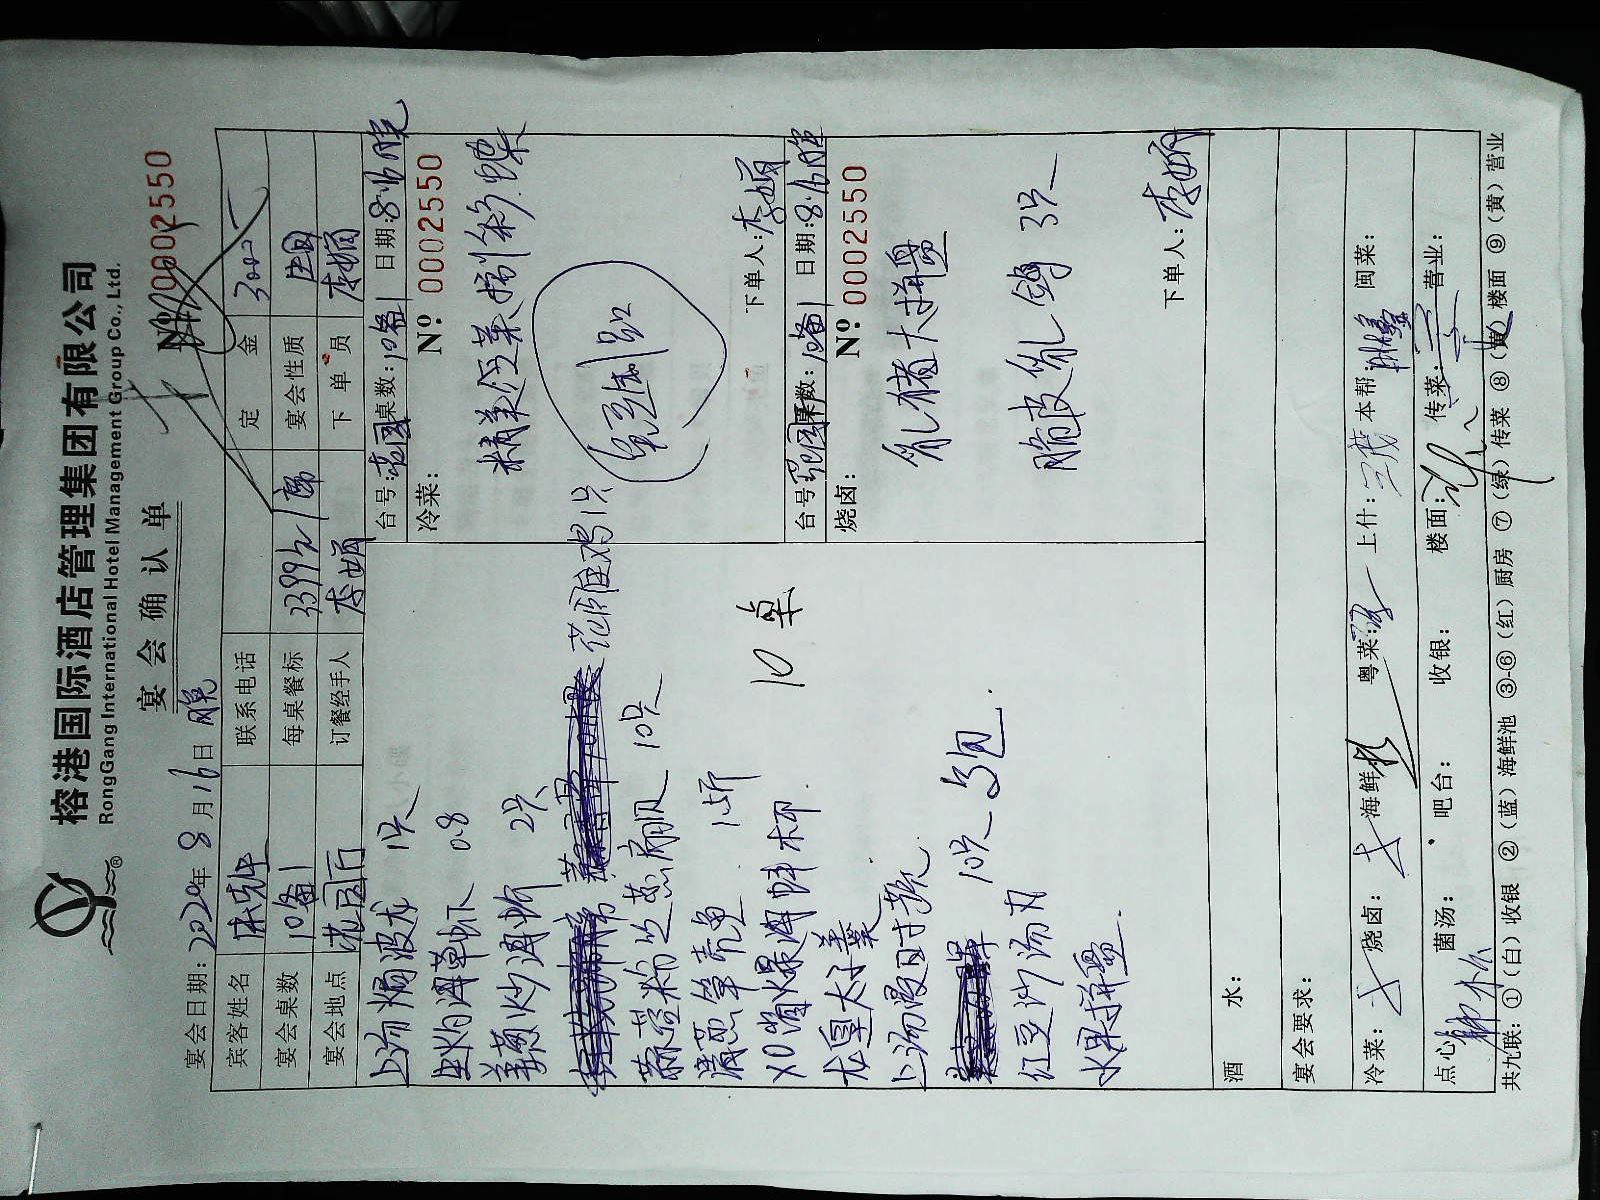 榕港国际酒店管理集团有限公司
RongGang International Hotel Management Group Co., Ltd.
宴会确认单
Nº 00002550
宴会日期: 2020年8月16日晚
宾客姓名 联系电话 定金 3000
宴会桌数 10备1 每桌餐标 3399元/席 宴会性质
宴会地点 花园厅 订餐经手人 李娟 下单员 李娟
上汤焗波龙 1只
白灼海草虾 0.8
姜葱炒海蟹 2只
花雕鸡1只
蒜蓉粉丝蒸扇贝 10只
清蒸笋壳鱼 1斤
XO酱爆海蚌
龙皇太子羹
上汤浸时蔬
10只
红豆沙汤丸
水果拼盘.
10桌
台号: 花园 桌数: 10备1 日期: 8.16晚
冷菜: Nº: 0002550
下单人: 李娟
台号: 花园 桌数: 10备1 日期: 8.16晚
烧卤: Nº: 0002550
乳猪大拼盘
脆皮乳鸽 3只
下单人: 李娟
酒水:
宴会要求:
冷菜: 烧卤: 海鲜: 粤菜: 上什: 本帮: 闽菜:
点心: 菌汤: 吧台: 收银: 楼面: 传菜: 营业:
共九联: ①(白)收银 ②(蓝)海鲜池 ③-⑥(红)厨房 ⑦(绿)传菜 ⑧(黄)楼面 ⑨(黄)营业